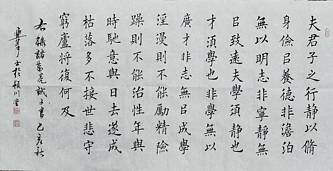 夫君子之行靜以脩
身儉㠯養德非澹泊
無以明志非寧靜無
㠯致遠夫學須靜也
才須學也非學無以
廣才非志無以成學
淫漫則不能勵精險
躁則不能治性年與
時馳意與日去遂成
枯落多不接世悲守
窮廬將復何及
右錄諸葛亮誡子書己亥秋
士於潁川堂